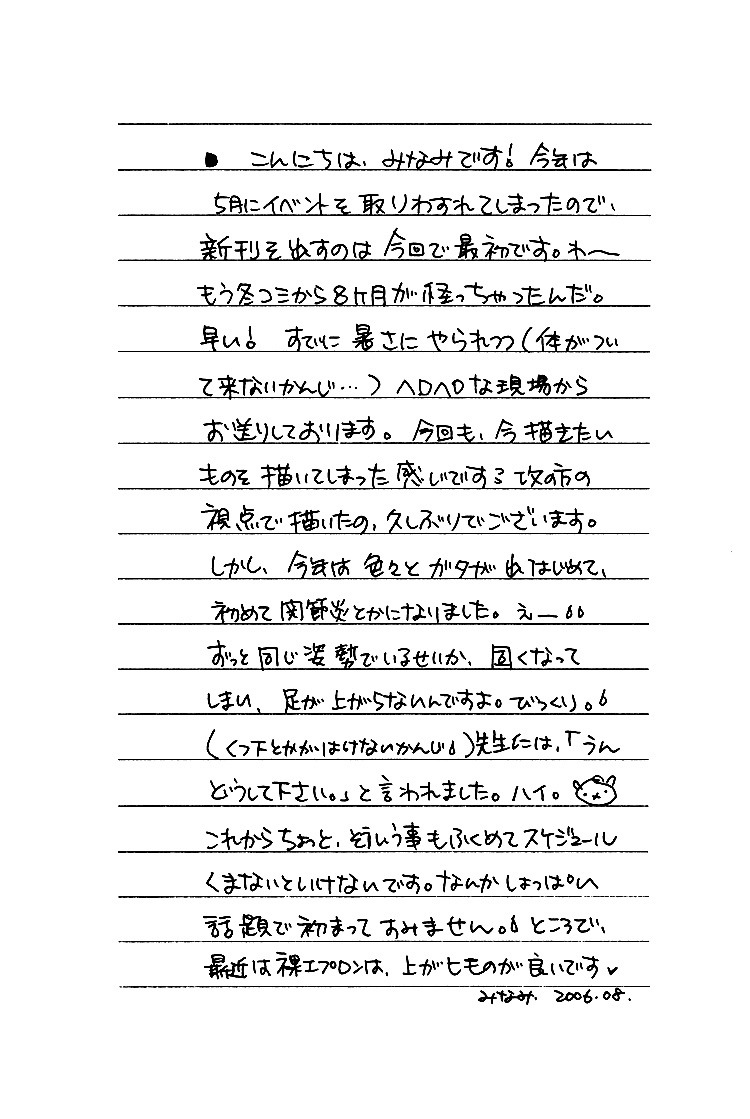 ● こんにちは、みなみです! 今年は
5月にイベントを取りわすれてしまったので、
新刊を出すのは今回で最初です。わ〜
もう冬コミから8ヶ月が経っちゃったんだ。
早い! すでに暑さにやられつつ(体がつい
て来ないかんじ…)ヘロヘロな現場から
お送りしております。今回も、今描きたい
ものを描いてしまった感じでする攻の方の
視点で描いたの、久しぶりでございます。
しかし、今年は色々とガタが出はじめて、
初めて関節炎とかになりました。えー
ずっと同じ姿勢でいるせいか、固くなって
しまい、足が上がらないんですよ。びっくり。
(くつ下とかがはけないかんじ)先生には、「うん
どうして下さい。」と言われました。ハイ。
これからちょっと、そういう事もふくめてスケジュール
くまないといけないです。なんかしょっぱい
話題で初まってすみません。ところで、
最近は裸エプロンは、上がせものが良いです♥
みなみ. 2006.08.